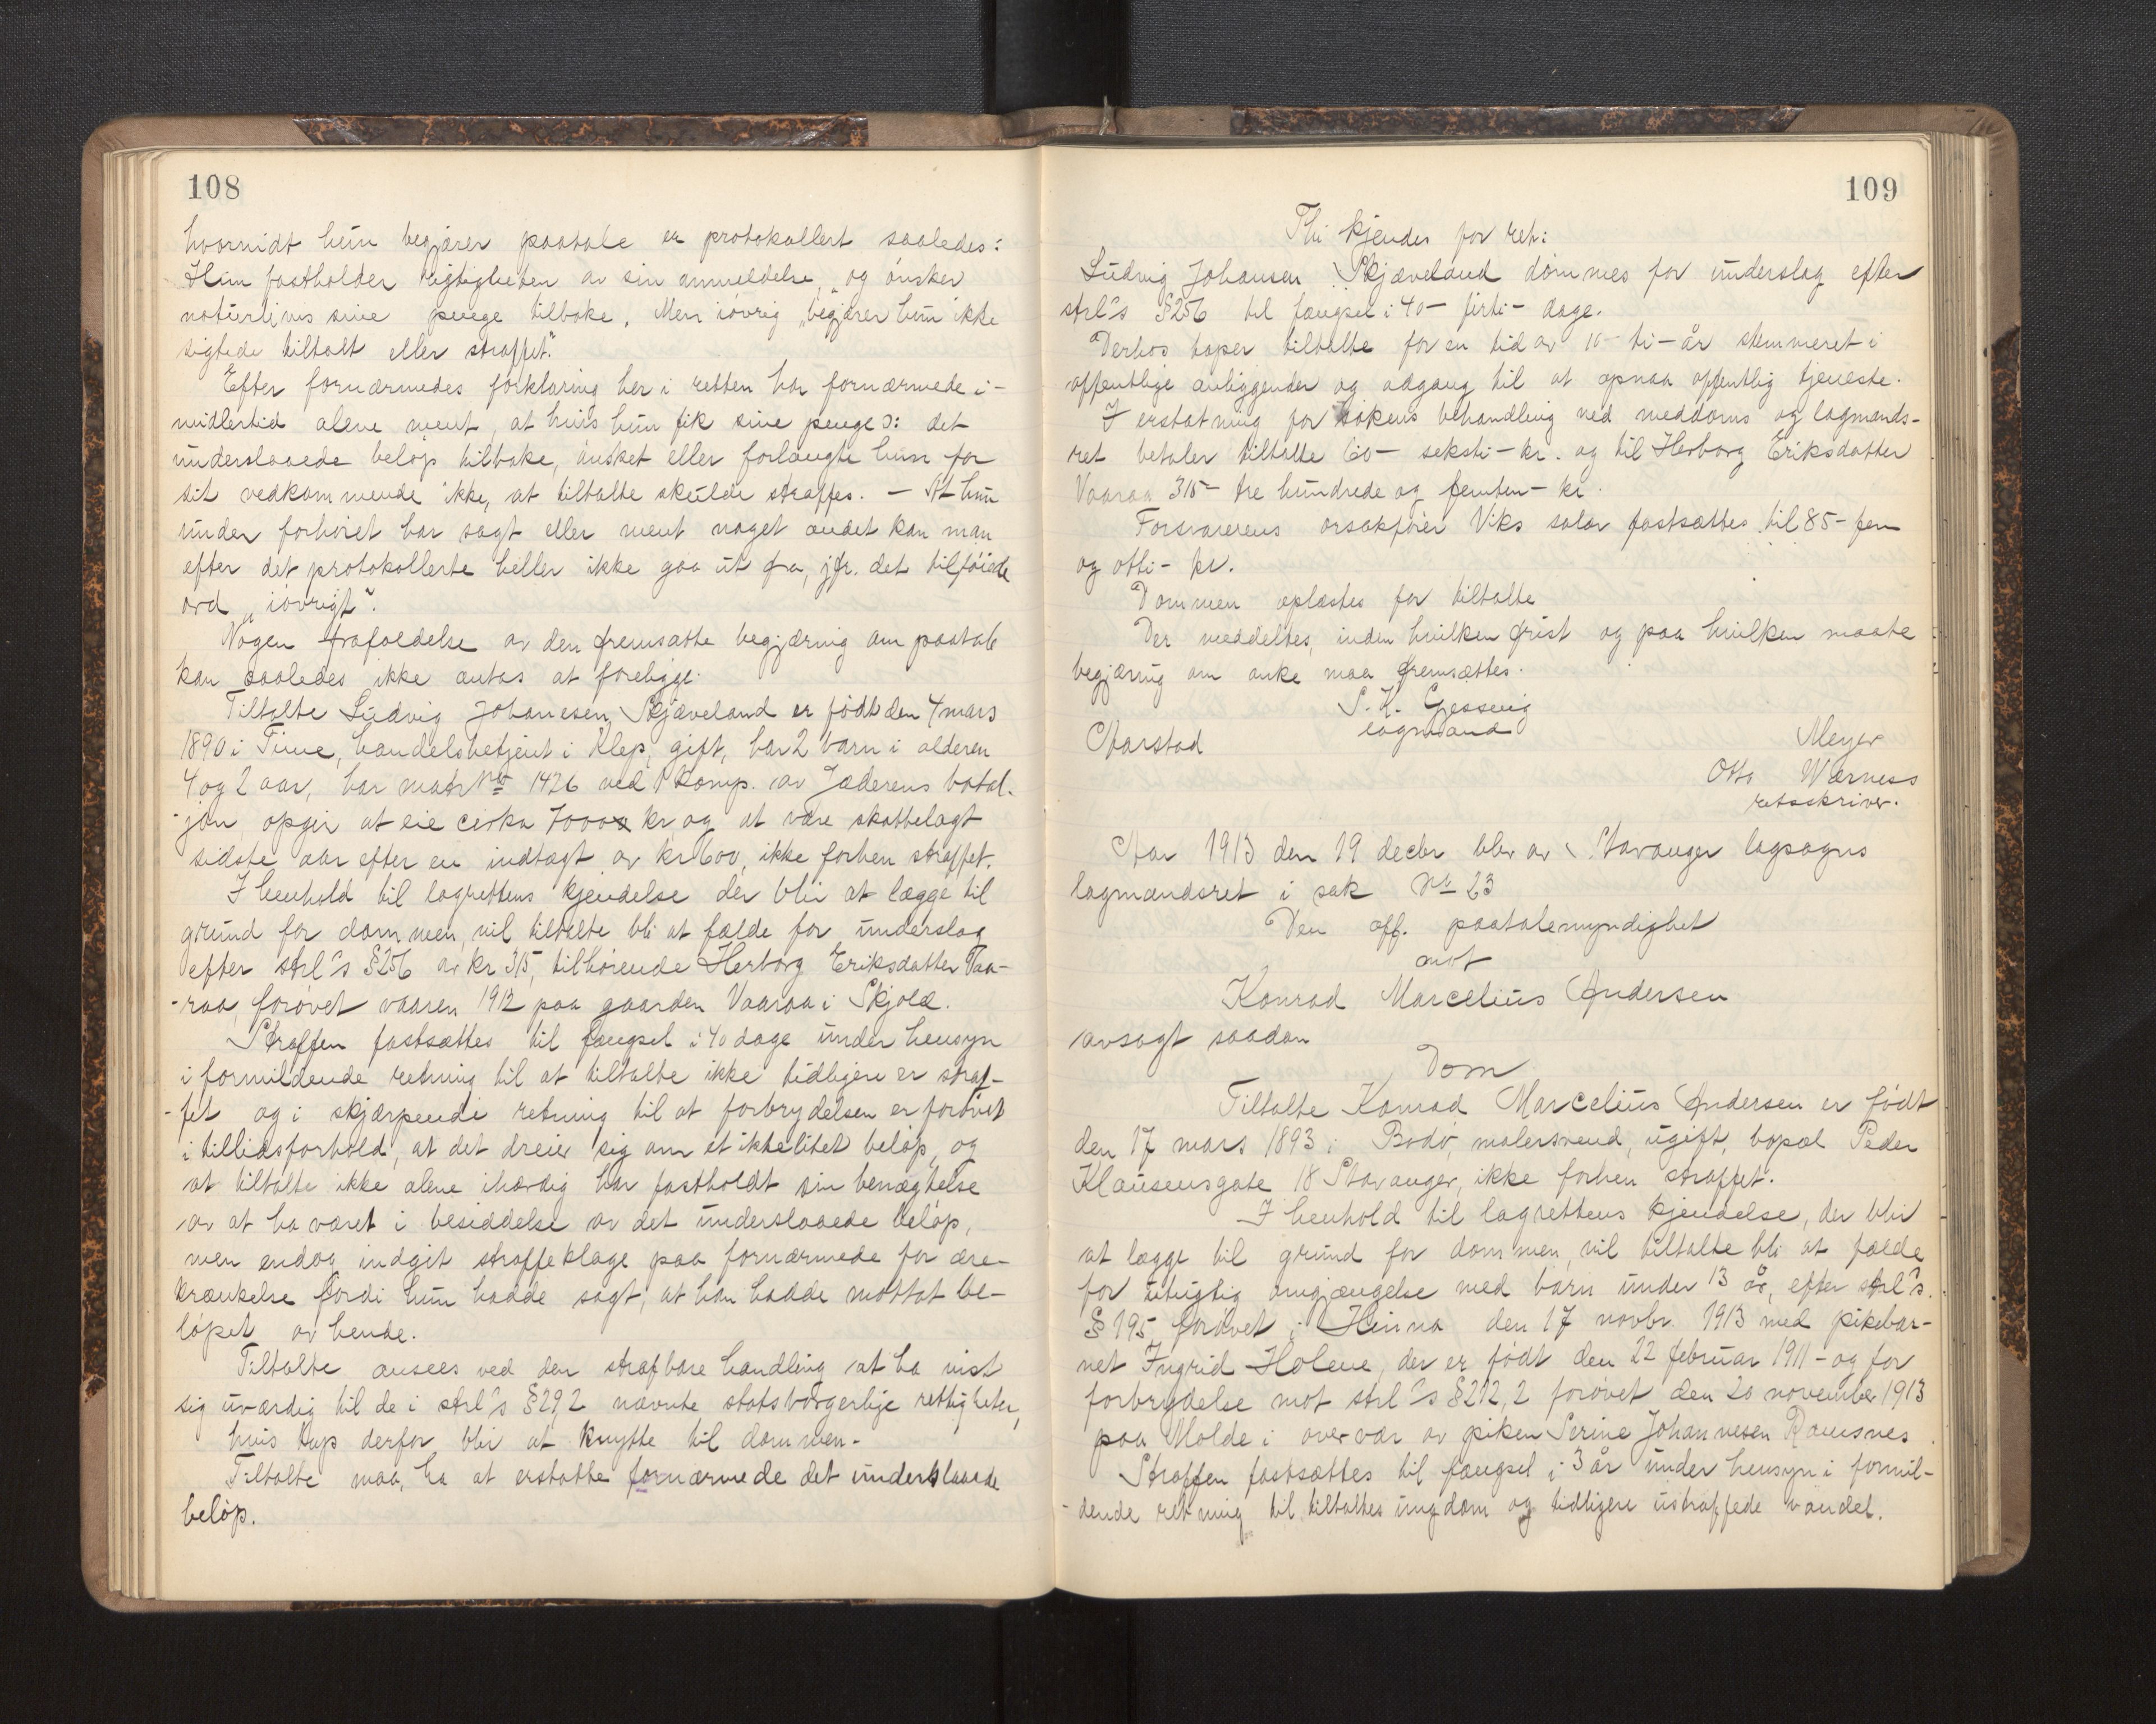 108
hvorvidt hun begjærer paatale er protokollert saaledes:
Hun fastholder rigtigheten av sin anmeldelse, og ønsker
naturligvis sine penge tilbake. Men iøvrig „begjærer hun ikke
sigtede tiltalt eller straffet".
Efter fornærmedes forklaring her i retten har fornærmede i-
midlertid alene ment, at hvis hun fik sine penge ɔ: det
underslaaede beløp tilbake, ønsket eller forlangte hun for
sit vedkommende ikke, at tiltalte skulde straffes. — At hun
under forhøret har sagt eller ment noget andet kan man
efter det protokollerte heller ikke gaa ut fra, jfr. det tilføiede
ord „iøvrigt".
Nogen frafaldelse av den fremsatte begjæring om paatale
kan saaledes ikke antas at foreligge.
Tiltalte Ludvig Johanesen Skjæveland er født den 4 mars
1890 i Time, handelsbetjent i Klep, gift, har 2 barn i alderen
4 og 2 aar, har matr № 1426 ved 1 Komp. av Jæderens batal-
-jon, opgir at eie cirka 7000 kr og at være skattelagt
sidste aar efter en indtægt av kr 600, ikke forhen straffet.
I henhold til lagrettens kjendelse der blir at lægge til
grund for dommen, vil tiltalte bli at fælde for underslag
efter strl's § 256 av kr 315, tilhørende Herborg Eriksdatter Vaa-
-raa, forøvet vaaren 1912 paa gaarden Vaaraa i Skjold.
Straffen fastsættes til fængsel i 40 dage under hensyn
i formildende retning til at tiltalte ikke tidligere er straf-
-fet og i skjærpende retning til at forbrydelsen er forøvet
i tillidsforhold, at det dreier sig om et ikke litet beløp, og
at tiltalte ikke alene ihærdig har fastholdt sin benægtelse
av at ha været i besiddelse av det underslaaede beløp,
men endog indgit straffeklage paa fornærmede for ære-
krænkelse fordi hun hadde sagt, at han hadde mottat be-
løpet av hende.
Tiltalte ansees ved den strafbare handling at ha vist
sig uværdig til de i strl's § 29,2 nævnte statsborgerlige rettigheter,
hvis tap derfor blir at knytte til dommen.
Tiltalte maa ha at erstatte fornærmede det underslaaede
beløp.
109
Thi kjendes for ret:
Ludvig Johansen Skjæveland dømmes for underslag efter
strl's § 256 til fængsel i 40 – firti – dage.
Derhos taper tiltalte for en tid av 10 – ti – år stemmeret i
offentlige anliggender og adgang til at opnaa offentlig tjeneste.
I erstatning for sakens behandling ved meddoms og lagmands-
ret betaler tiltalte 60 – seksti – kr. og til Herborg Eriksdatter
Vaaraa 315 – tre hundrede og femten – kr.
Forsvarerens orsakfører Viks salær fastsættes til 85 – fem
og otti – kr.
Dommen oplæstes for tiltalte
Der meddeltes, inden hvilken frist og paa hvilken maate
begjæring om anke maa fremsættes.
S. K.
lagmand
Aarstad
Meyer
Otto Wærness
retsskriver.
Aar 1913 den 19 decbr blev av Stavanger lagsogns
lagmandsret i sak № 23
Den off. paatalemyndighet
mot
Konrad Marcelius Andersen
avsagt saadan
Dom
Tiltalte Konrad Marcelius Andersen er født
den 17 mars 1893 i Bodø, malersvend, ugift, bopæl Peder
Klausensgate 18 Stavanger, ikke forhen straffet.
I henhold til lagrettens kjendelse, der blir
at lægge til grund for dommen, vil tiltalte bli at fælde
for utugtig omgjængelse med barn under 13 år, efter strl's
§ 195 forøvet i Hinna den 17 novbr. 1913 med pikebar-
net Ingrid Holene, der er født den 22 februar 1911 – og for
forbrydelse mot strl's § 212,2 forøvet den 20 november 1913
paa Molde i overvær av piken Serine Johannesen Ramsnes
Straffen fastsættes til fængsel i 3 år under hensyn i formil-
-dende retning til tiltaltes ungdom og tidligere ustraffede vandel.